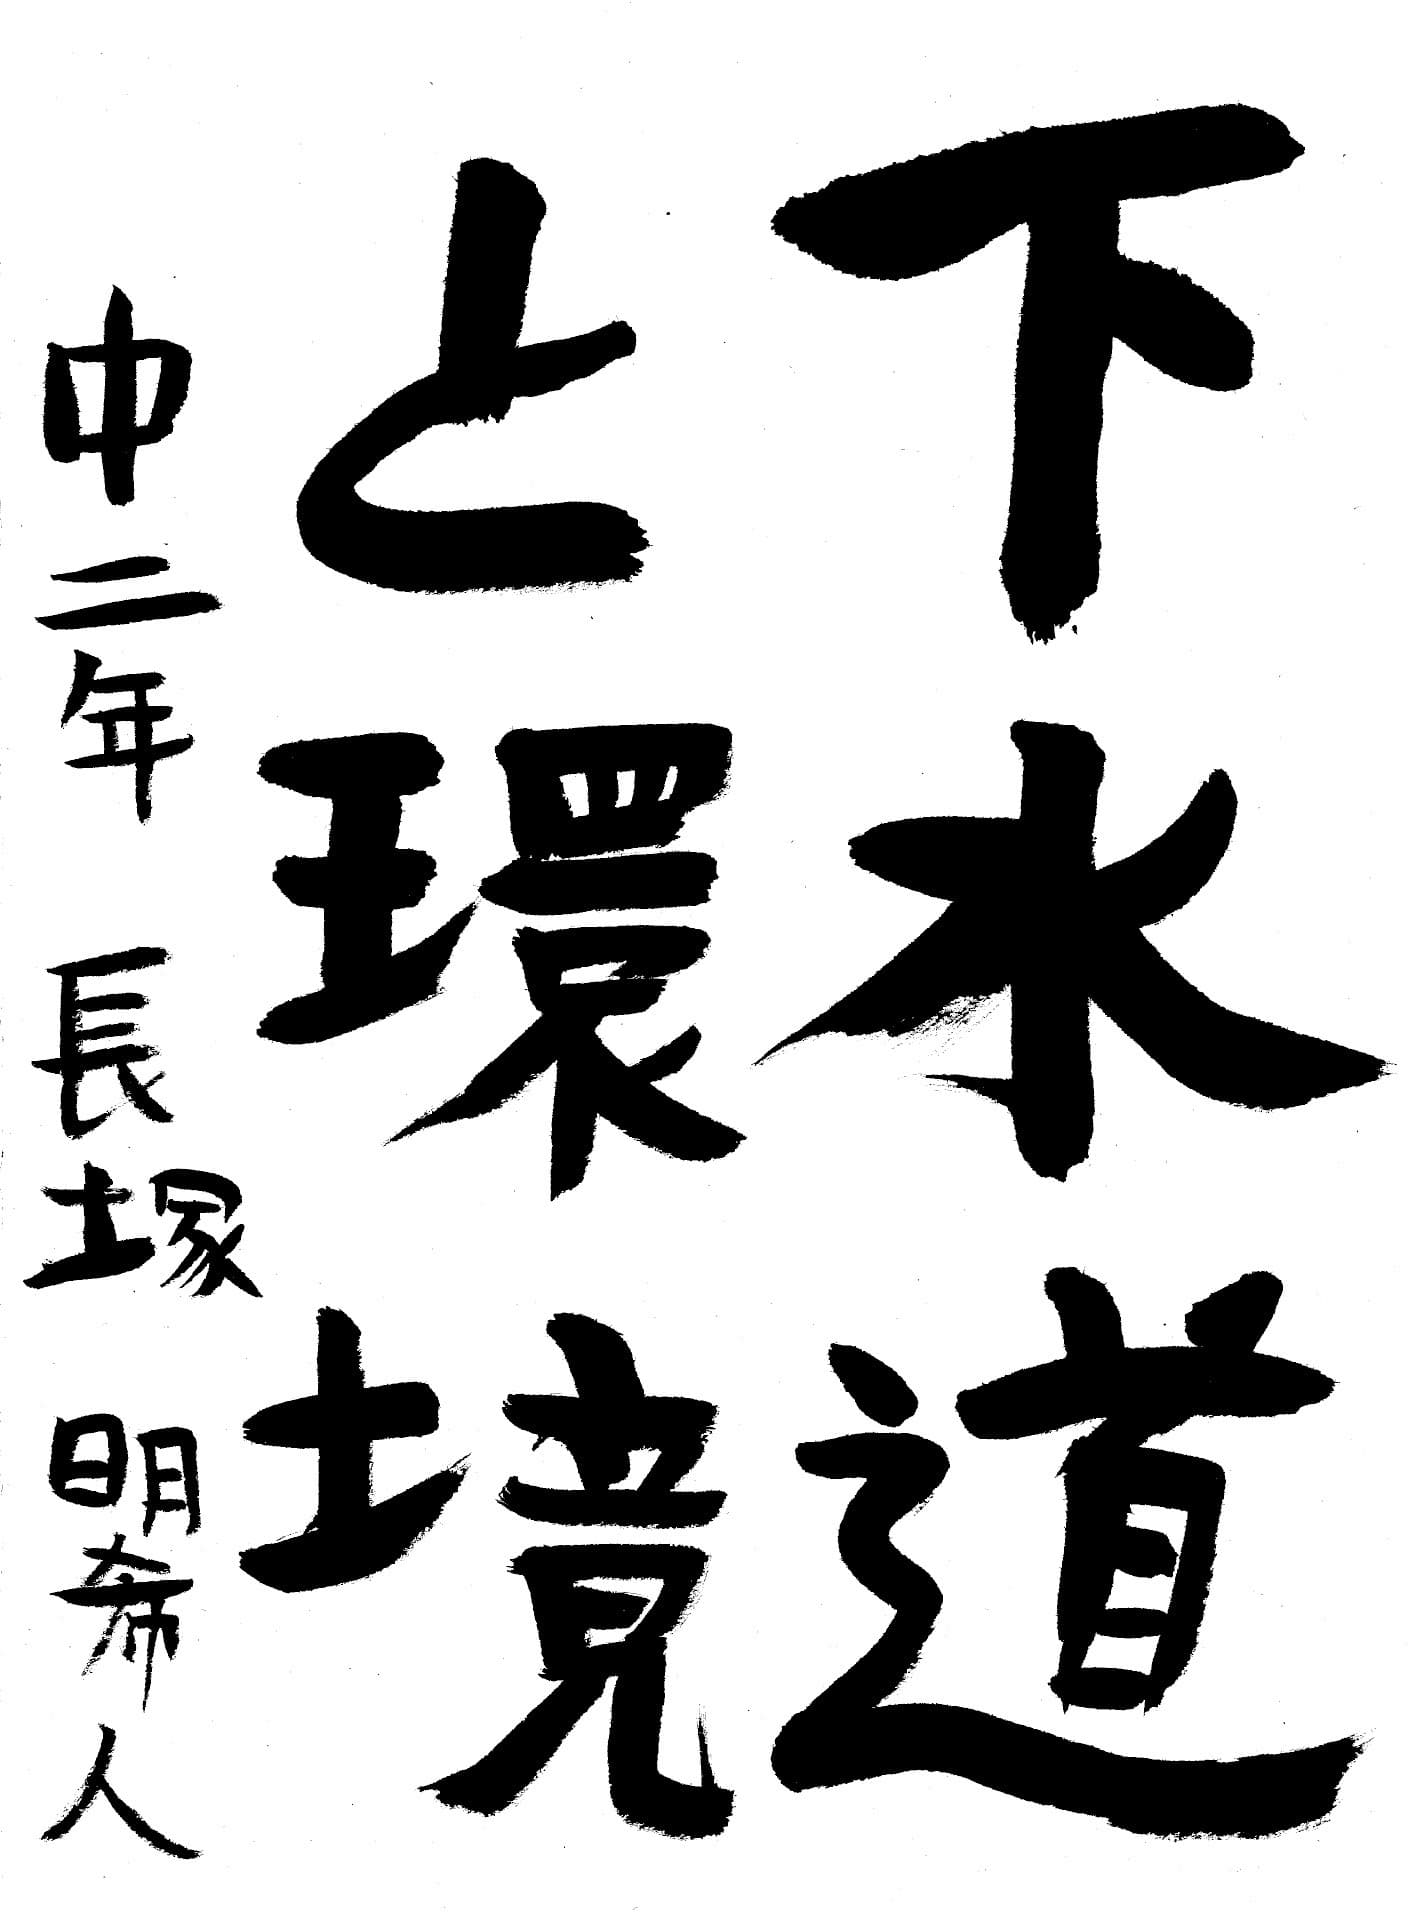 下水道
と環境
中二年 長塚明希人